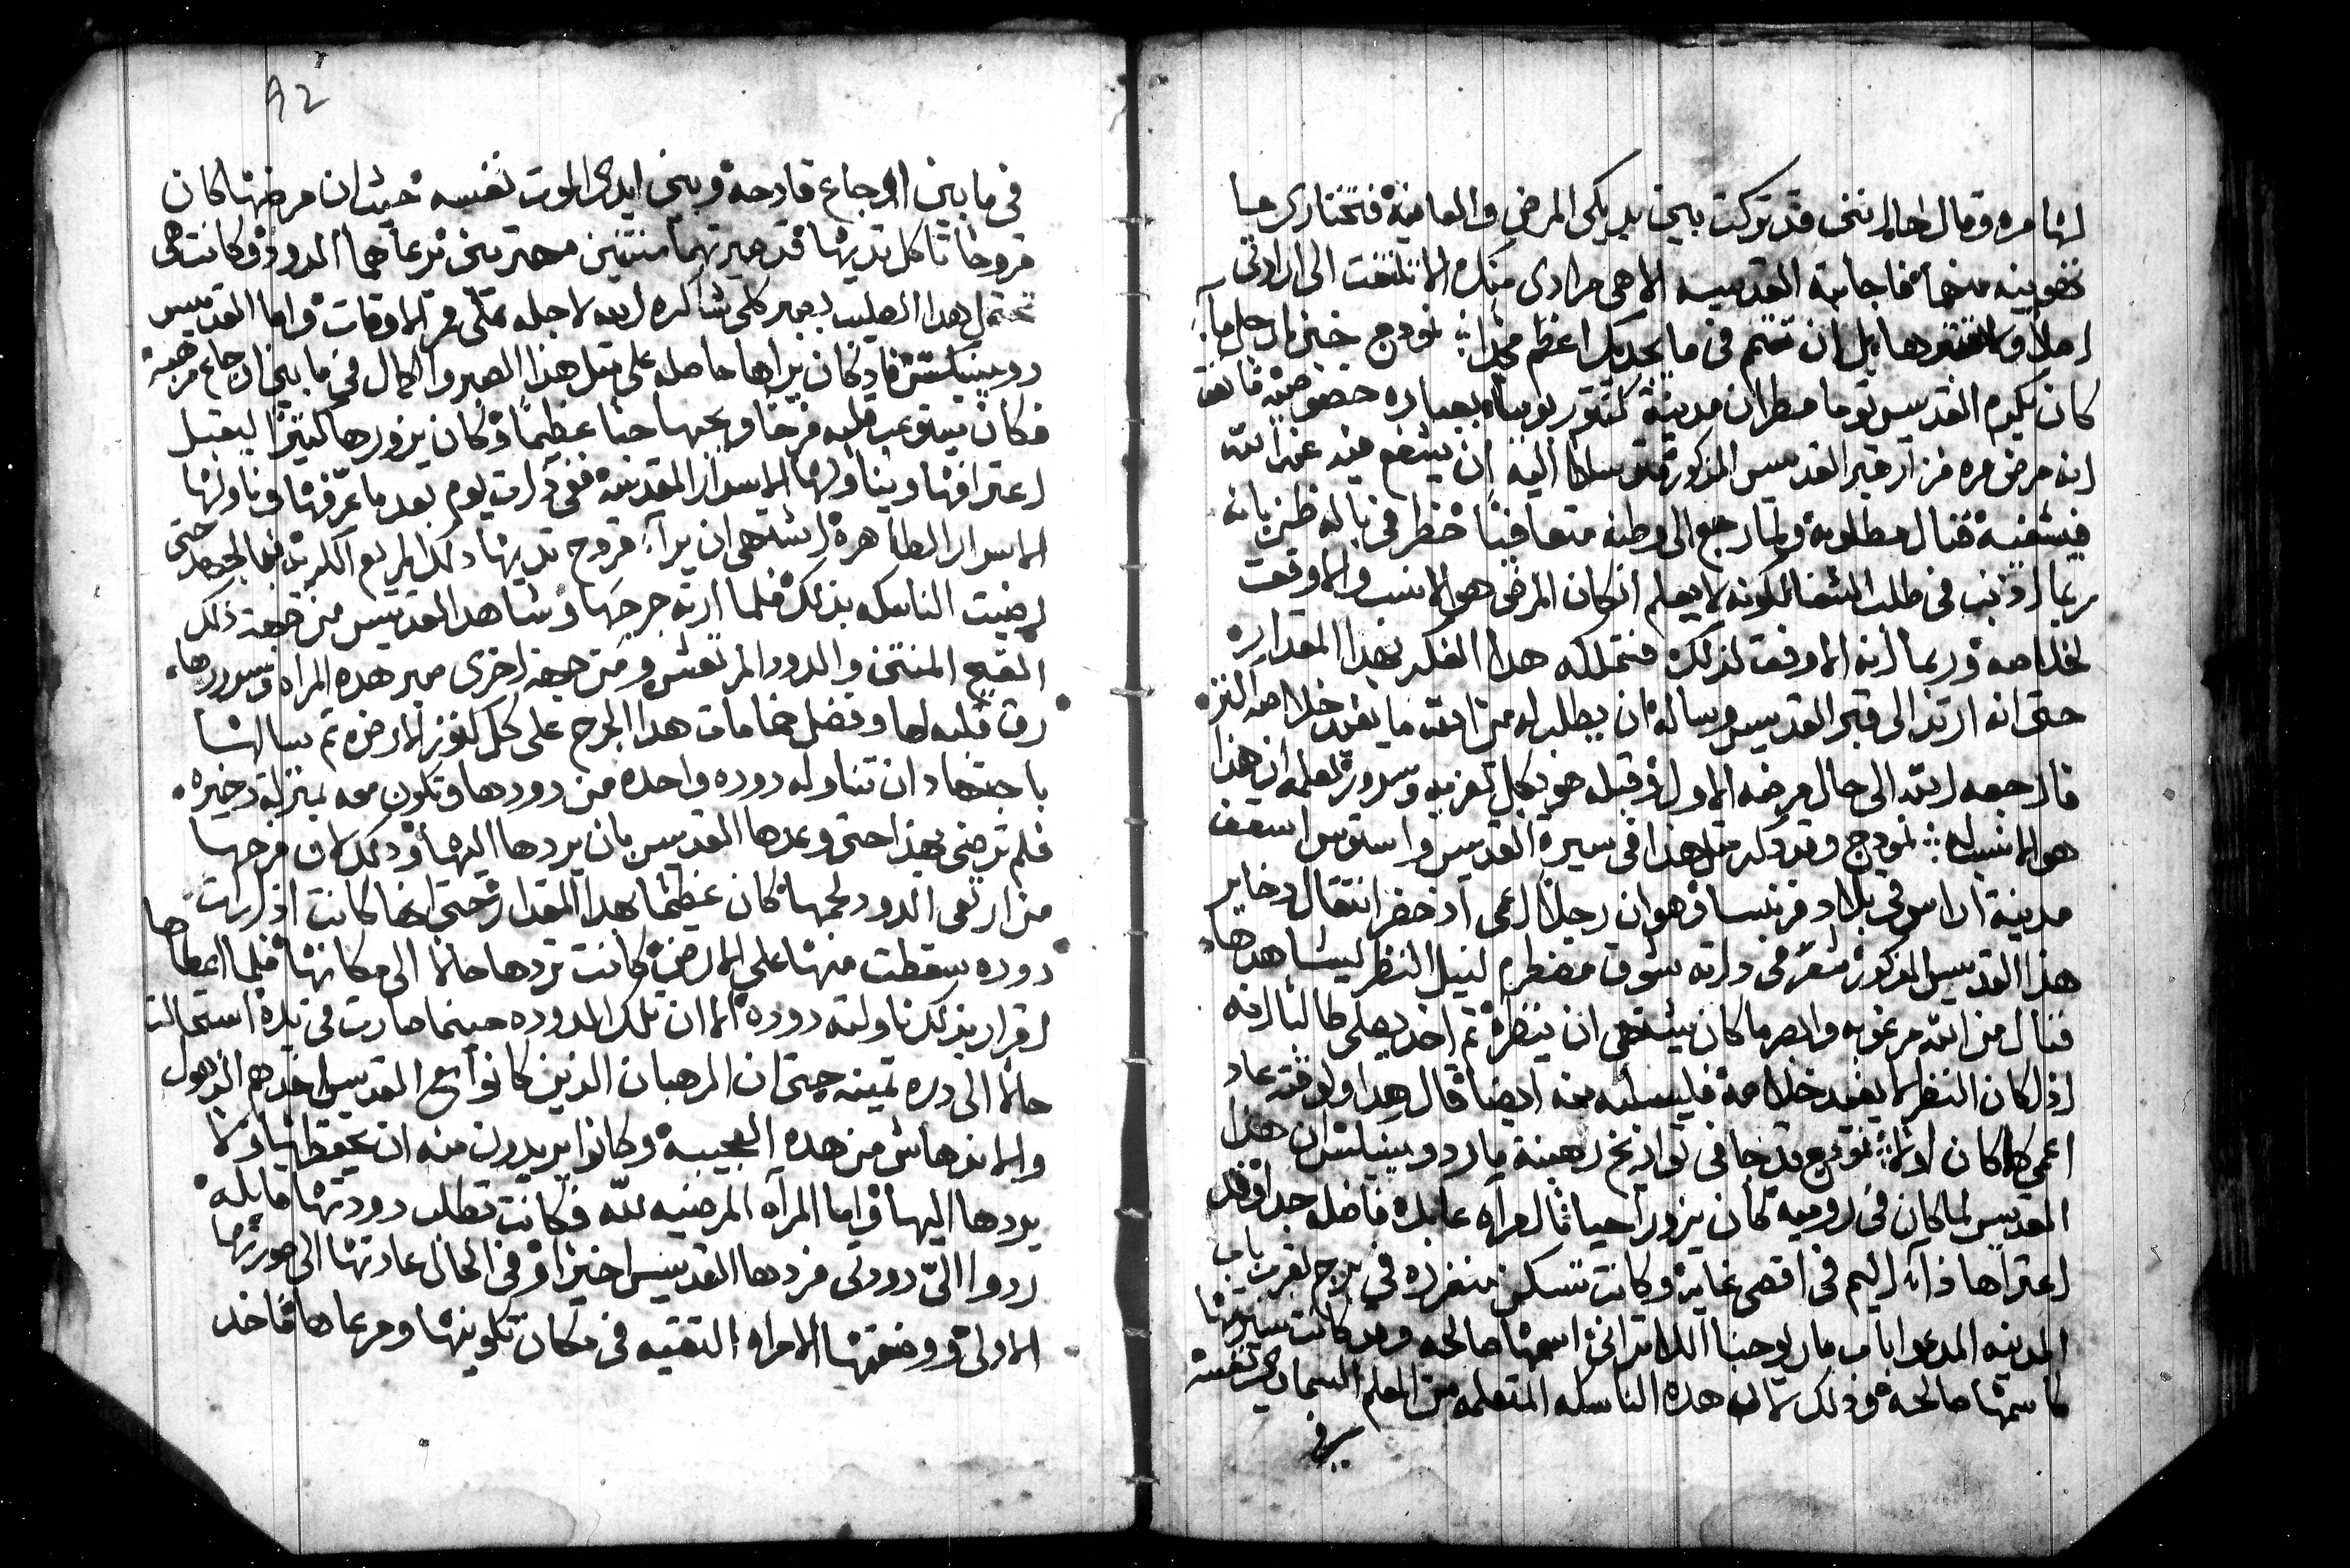 لها مره وقال هالانني قد تركت بين يديكي المرض والعافية فتختاري ما
تهوينه منهما فاجابته القديسه الاهي مرادي منك الا تلتفت الى ارادتي
اصلا ولا تنفردها بل ان تتم في ما يجديك اعظم مجداً: نموذج خبر ما رجل ما
كان يكرم القديس توما مطران مدينة كنتوربوريا بعباده خصوصيه فاتفق
انه مرض مره فزار قبر القديس المذكور متوسلا اليه ان يشفع فيه عند الله
فيشفيه فنال مطلوبه ولما رجع الى وطنه متعافيا خطر في باله ظن بانه
ربما اذنب في طلب الشفا لكونه لا يعلم ان كان المرض هو الانسب والاوفق
لخلاصه وربما انه الاوفق لذلك فتملكه هدا الفكر بهدا المقدار
حتى انه ارتد الى قبر القديس وساله ان يطلب له من الله ما يفيد خلاصه اكثر
فارجعه الله الى حال مرضه الاول وقبله هو بكل تعزيه وسرور لعلمه ان هذا
هو الانسب له: نموذج وقد ذكر مثل هذا في سيرة القديس واستوس اسقف
مدينة اراس في بلاد فرنسا وهو ان رجلا اعمى اذ حضر انتقال دخاير
هذا القديس المذكور شعر في ذاته بشوق مضطرم لنيل النظر ليشاهدها
فنال من الله مرغوبه وابصر ما كان يشتهي ان ينظره ثم اخذ يصلي طالبا انه
اذا كان النظر لا يفيد خلاصه فليسلبه منه ايضا قال هدا ولوقته عاد
اعمى كما كان اولا: نموذج قد جا في تواريخ رهبنة مار دومينيكس ان هذا
القديس لما كان في روميه كان يزور احيانا امراه عابده فاضله جدا وقد
اعتراها دآ اليم في اقصى غايه وكانت تسكن منفرده في برج بقرب باب
المدينه المدعوا باب مار يوحنا اللاتراني اسمها صالحه وقد كانت سيرتها
كاسمها صالحة وذلك لان هذه الناسكه المتعلمه من المعلم السماوي نفسه
في
92
في ما بين اوجاع قادحة وبين ايدي الموت نفسه حيث ان مرضها كان
قروحا تاكل ثديها قد صيرتهما منتنين مهترين ترعاهما الدود وكانت هي
تحتمل هذا الصليب بصبر كلي شاكره الله لاجله على مر الاوقات واما القديس
دومينيكس فاذ كان يراها حاصله على مثل هذا الصبر والكمال في ما بين اوجاع مرضيه
فكان يستوعب قلبه فرحا ويحبها حبا عظيما وكان يزورها كثيرا ليقبل
اعترافها ويناولها الاسرار المقدسه ففي ذات يوم بعد ما عرّفها وناولها
الاسرار الطاهره اشتهى ان يرآ قروح ثديها ذلك المريع الكريه فبالجهد حتى
رضيت الناسكه بذلك فلما ارته جرحها وشاهد القديس من جهة ذلك
القيح المنتن والدود المرتعش ومن جهة اخرى صبر هذه المراه وسرورها
رق قلبه لها وفضل هذا الجرح على كل كنوز الارض ثم سالها
باجتهاد ان تناوله دوده واحده من دودها وتكون معه بمنزلة دخيره
فلم ترضى بهذا حتى وعدها القديس بان يردها اليها وذلك لان فرحها
من ارتعى الدود لحمها كان عظيما بهدا المقدار حتى انها كانت اذا رات
دوده سقطت منها على الارض كانت تردها حالا الى مكانها فلما اعطاها
اقرار بذلك ناولته دودة الا ان تلك الدوده حينما صارت في يده استحالت
حالا الى دره ثمينه حتى ان الرهبان الذين كانوا مع القديس اخدهم الذهول
والاندهاش من هذه العجيبه وكانوا يريدون منه ان يحفظها ولا
يردها اليها واما المرآه المرضيه لله فكانت تطلب دودتها قايله
ردوا اليّ دودتي فردها القديس اخيرا وفي الحال عادتها الى صورتها
الاولى ووضعتها الامراه التقيه في مكان تكوينها ومرعاها فاخد